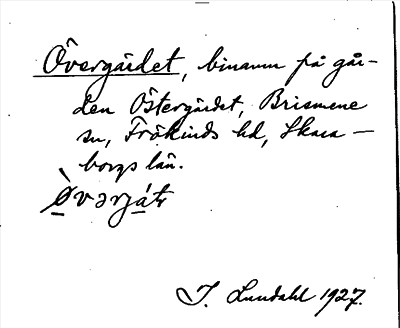 Övergärdet, binamn på går-
den Östergärdet, Brismene
sn, Frökinds hd, Skara-
borgs län.
Øvarjá̱tɩ
I. Lundahl 1927.